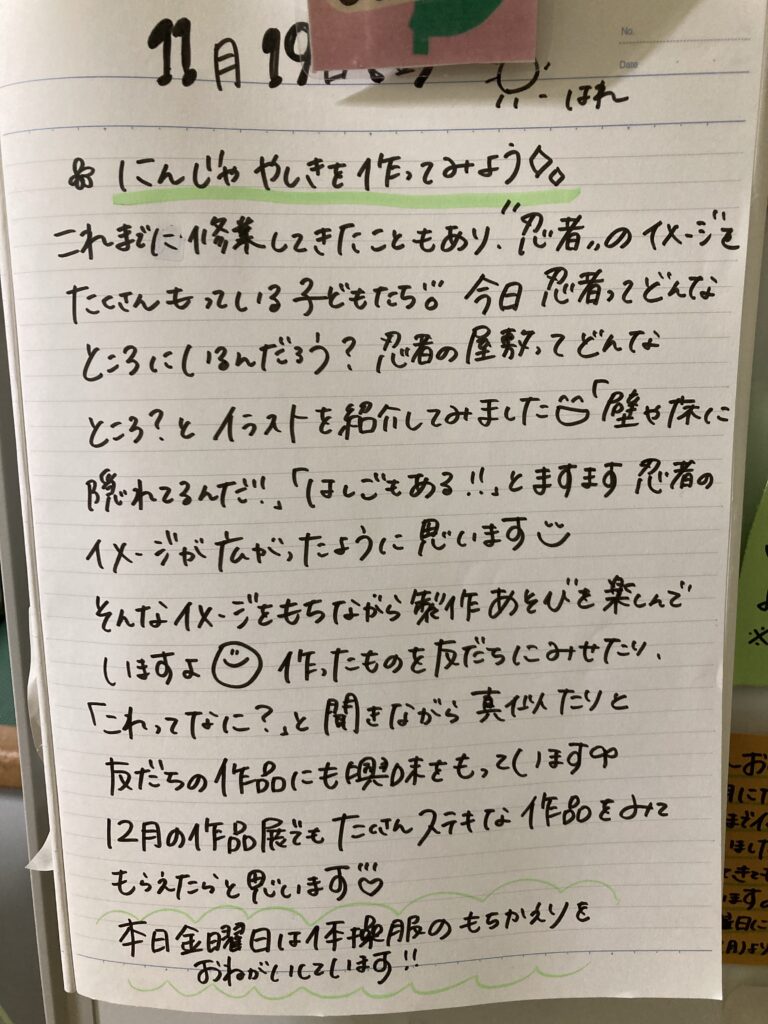 11月19日
No.
Date
はれ
にんじゃやしきを作ってみよう
これまでに修業してきたこともあり、"忍者"のイメージを
たくさんもっている子どもたち!。今日 忍者ってどんな
ところにいるんだろう？忍者の屋敷ってどんな
ところ？とイラストを紹介してみました「壁や床に
隠れてるんだ!!」「はしごもある!!」とますます忍者の
イメージが広がったように思います
そんなイメージをもちながら製作あそびを楽しんで
いますよ 作ったものを友だちにみせたり、
「これってなに？」と聞きながら真似たりと
友だちの作品にも興味をもっています
12月の作品展でもたくさんステキな作品をみて
もらえたらと思います
本日金曜日は体操服のもちかえりを
おねがいしています!!